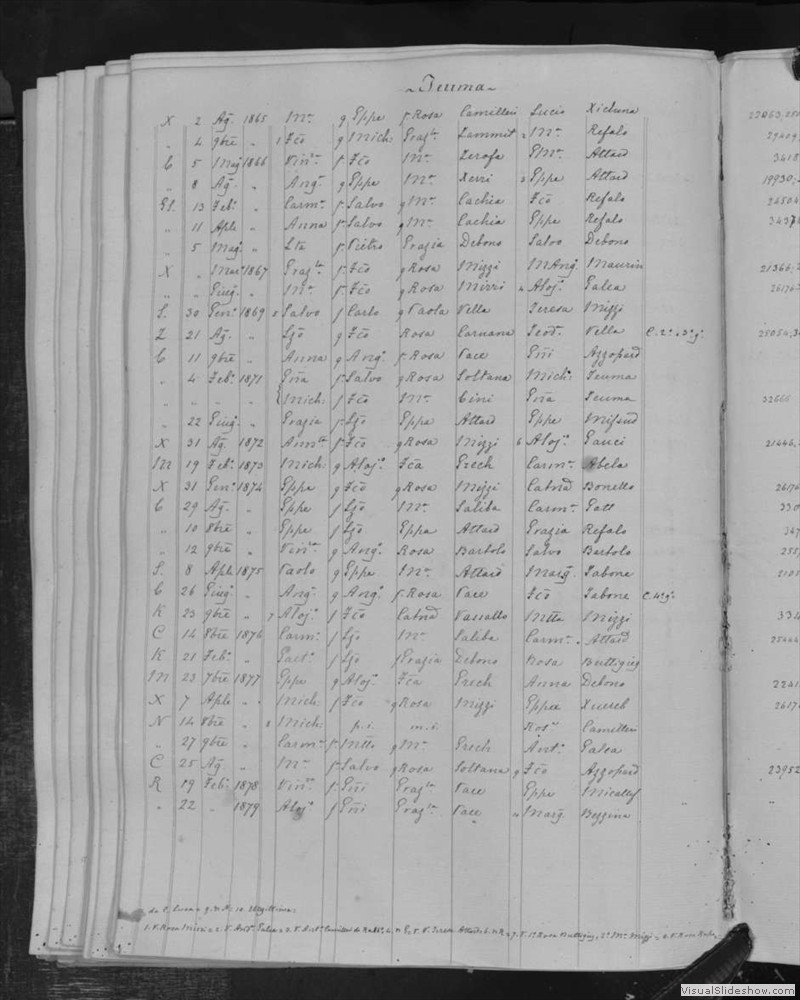 ~ Teuma ~
X 2 Ag. 1865 Mª g Eppe f Rosa Camilleri Lucio Xicluna
„ 4 9bre „ 1 Fco g Mich Graz. Zammit 2 Mª Refalo
C 5 Mag 1866 Vinª f Fco Mª Zerafa Mª Attard
„ 8 Ag. „ Angª g Eppe Mª Xerri 3 Eppe Attard
13 Febº „ Carmª f Salvo g Mª Cachia Fco Refalo 26504
„ 11 Aple „ Anna f Salvo g Mª Cachia Eppe Refalo
„ 5 Mag. „ f Pietro Grazia Debono Salvo Debono
X „ Mar. 1867 Graz. f Fco g Rosa Mizzi MAng. Maurin 21366
„ „ Giug. „ Mª f Fco g Rosa Mizzi 4 Aloj. Galea 26176
S. 30 Genº 1869 Salvo f Carlo g Paola Vella Teresa Mizzi
Z 21 Ag. „ Lzo g Fco Rosa Caruana Teod. Vella C. 2º e 3º gº 25054
C 11 9bre „ Anna g Angº f Rosa Pace Gni Azzopard
„ 4 Febº 1871 Gña f Salvo g Rosa Soltana Mich. Teuma
„ „ „ „ Mich f Fco Mª Cini Gña Teuma 32666
„ 22 Giug. „ Grazia f Lzo Eppa Attard Eppe Mifsud
X 31 Ag. 1872 f Fco g Rosa Mizzi 6 Aloj. Gauci 21446
M 19 Febº 1873 Mich g Aloj. Fca Grech Carmª Abela
X 31 Genº 1874 Eppa g Fco g Rosa Mizzi Catnd Bonello 26176
C 29 Ag. „ Eppe f Lzo Mª Saliba Carmª Gatt
„ 10 8bre „ Eppe f Lzo Eppa Attard Grazia Refalo 347
„ 12 9bre „ Vinª g Angº Rosa Bartolo Salvo Bartolo 255
S. 8 Aple 1875 Paolo g Eppe Mª Attard Marg. Tabone
C 26 Giug. „ Angª g Angº f Rosa Pace Fco Tabone C. 4º gº
K 23 9bre „ 7 Aloj. f Fco Catnd Vassallo Mtta Mizzi 334
C 14 8bre 1876 Carmª f Lzo Mª Saliba Carmº Attard 25444
K 21 Febº „ Gaetº f Lzo f Grazia Debono Rosa Buttigieg
M 23 7bre 1877 Eppe g Aloj. Fca Grech Anna Debono 2241
X 7 Aple „ Mich f Fco g Rosa Mizzi Eppa Xuereb 2617
N 14 8bre „ 8 Mich p.i. m.i. Rosª Camilleri
„ 27 9bre „ Carmª f Mtteo g Mª Grech Antº Galea
C 25 Ag. „ Mª f Salvo g Rosa Soltana 9 Fco Azzopard 23952
R 19 Febº 1878 Vinª f Gni Graz. Pace Eppe Micallef
„ 22 „ 1879 Alojº f Gni Graz. Pace Marg. Bezzina
VisualSlideshow.com